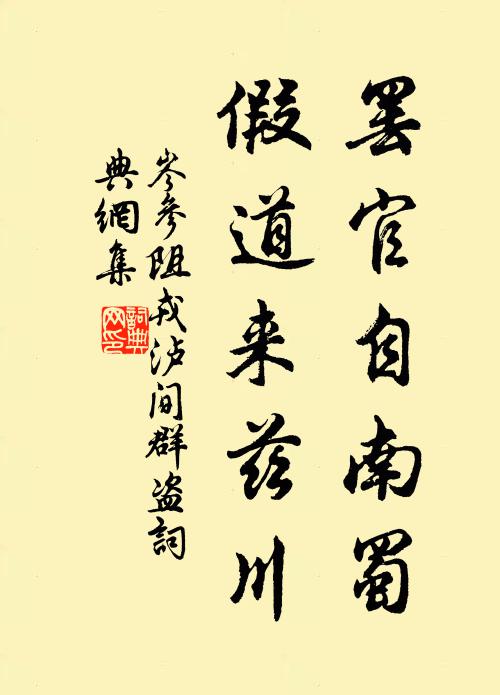 罢官自南蜀
假道来兹川
岑参阻戎泸间群盗詞
典網集
詞典
网印